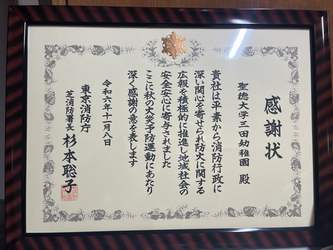 感謝状
聖徳大学三田幼稚園 殿
貴社は平素から消防行政に
深い関心を寄せられ防火に関する
広報を積極的に推進し地域社会の
安全安心に寄与されました
ここに秋の火災予防運動にあたり
深く感謝の意を表します
令和六年十一月八日
東京消防庁
芝消防署長 杉本聡子